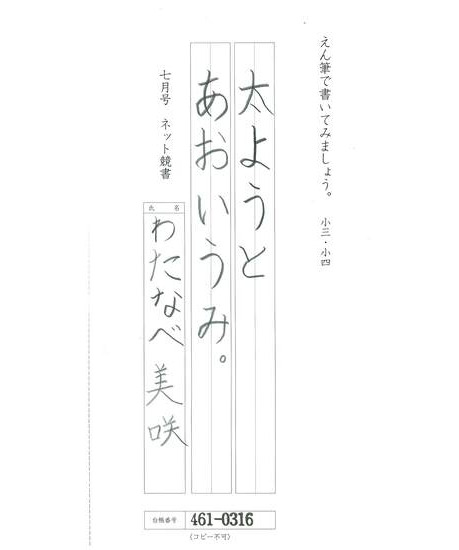 えん筆で書いてみましょう。 小三・小四
太ようと
あおいうみ。
七月号 ネット競書
氏名
わたなべ 美咲
台帳番号 461-0316
(コピー不可)